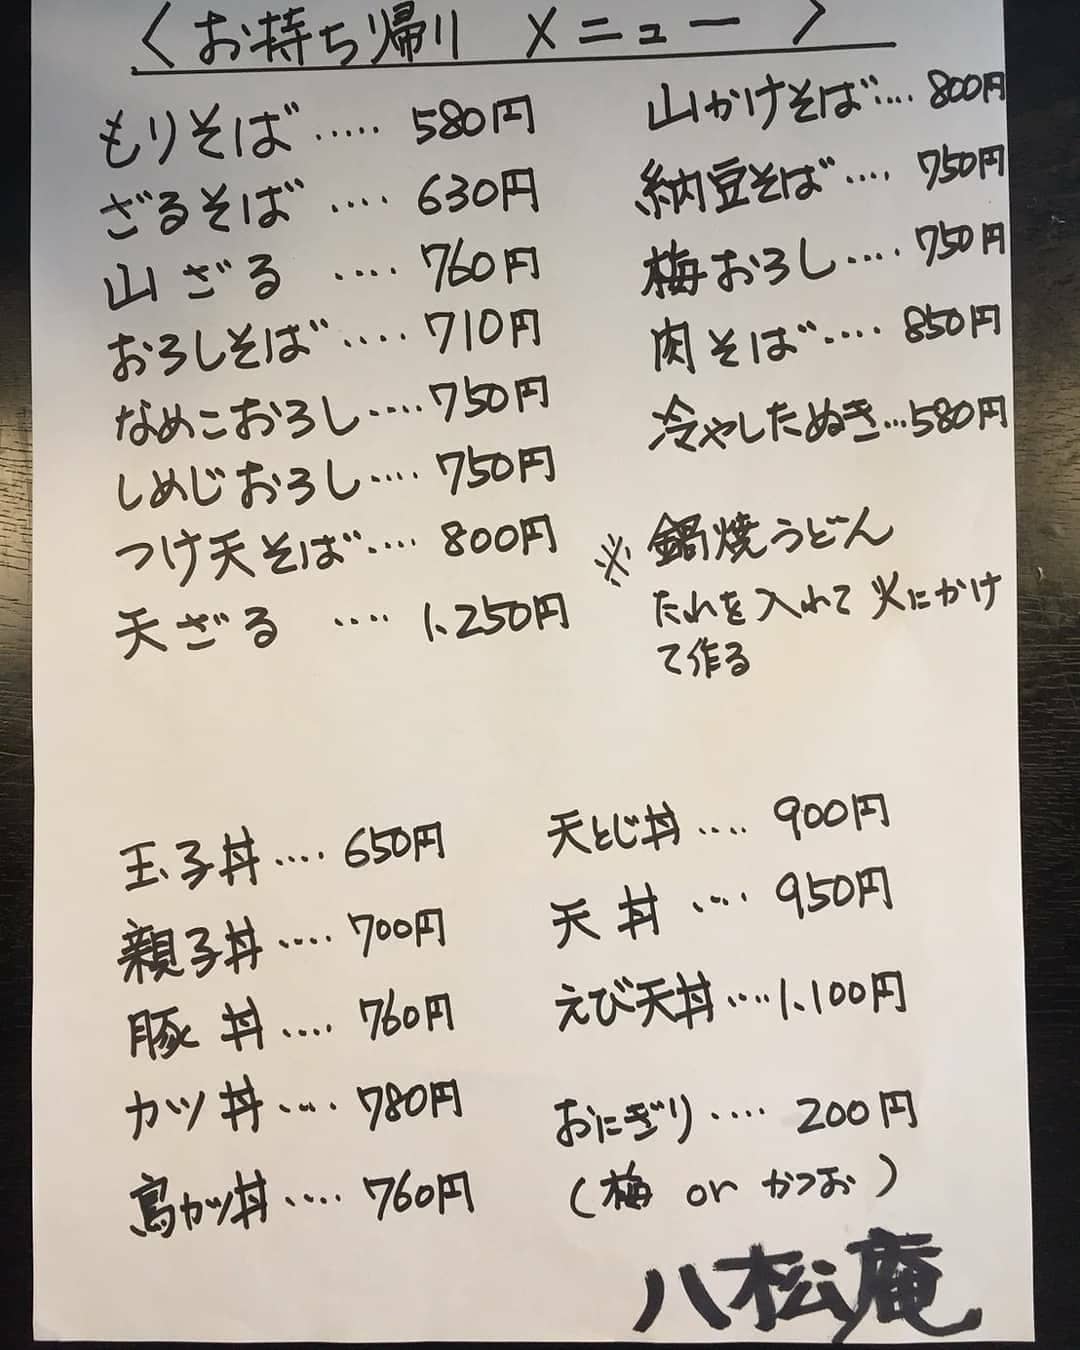 〈お持ち帰り メニュー〉
もりそば‥‥‥580円
ざるそば‥‥630円
山ざる ‥‥760円
おろしそば‥‥710円
なめこおろし‥‥750円
しめじおろし‥‥750円
つけ天そば‥‥800円
天ざる ‥‥1,250円
山かけそば‥‥800円
納豆そば‥‥750円
梅おろし‥‥750円
肉そば‥‥850円
冷やしたぬき‥‥580円
※鍋焼うどん
たれを入れて火にかけ
て作る
玉子丼‥‥650円
親子丼‥‥700円
豚丼‥‥760円
カツ丼‥‥780円
鳥カツ丼‥‥760円
天とじ丼‥‥900円
天丼‥‥950円
えび天丼‥‥1,100円
おにぎり‥‥200円
(梅 or かつお)
八松庵